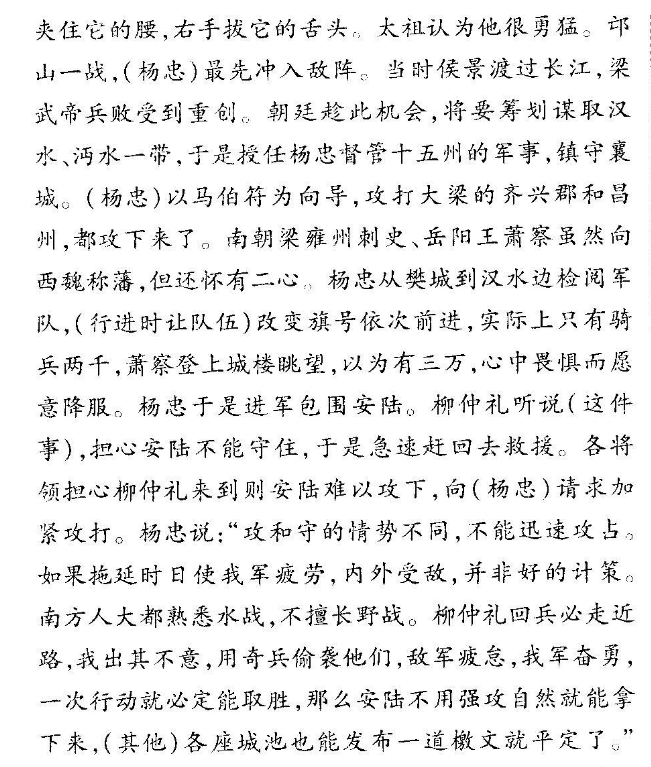 夹住它的腰,右手拔它的舌头。太祖认为他很勇猛。邙
山一战,(杨忠)最先冲入敌阵。当时侯景渡过长江,梁
武帝兵败受到重创。朝廷趁此机会,将要筹划谋取汉
水、沔水一带,于是授任杨忠督管十五州的军事,镇守襄
城。(杨忠)以马伯符为向导,攻打大梁的齐兴郡和昌
州,都攻下来了。南朝梁雍州刺史、岳阳王萧察虽然向
西魏称藩,但还怀有二心。杨忠从樊城到汉水边检阅军
队,(行进时让队伍)改变旗号依次前进,实际上只有骑
兵两千,萧察登上城楼眺望,以为有三万,心中畏惧而愿
意降服。杨忠于是进军包围安陆。柳仲礼听说(这件
事),担心安陆不能守住,于是急速赶回去救援。各将
领担心柳仲礼来到则安陆难以攻下,向(杨忠)请求加
紧攻打。杨忠说:“攻和守的情势不同,不能迅速攻占。
如果拖延时日使我军疲劳,内外受敌,并非好的计策。
南方人大都熟悉水战,不擅长野战。柳仲礼回兵必走近
路,我出其不意,用奇兵偷袭他们,敌军疲怠,我军奋勇,
一次行动就必定能取胜,那么安陆不用强攻自然就能拿
下来,(其他)各座城池也能发布一道檄文就平定了。”